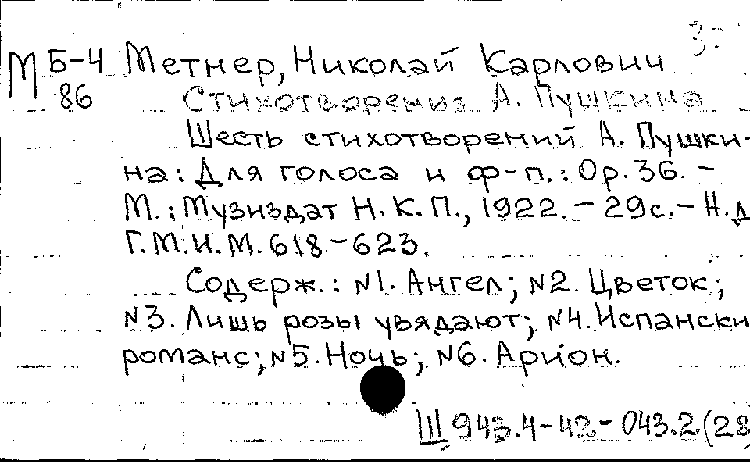 3-
М Б-4 Метнер, Николай Карлович
86 Стихотворения А. Пушкина
Шесть стихотворений А. Пушки-
на: Для голоса и ф-п.: Ор. 36. –
М.: Музиздат Н.К.П., 1922. – 29с. – Н.д
Г.М.И.М. 618-623.
Содерж.: №1. Ангел; №2. Цветок;
№3. Лишь розы увядают; №4. Испански
романс; №5. Ночь; №6. Арион.
Ш 943.4-42-043.2(28